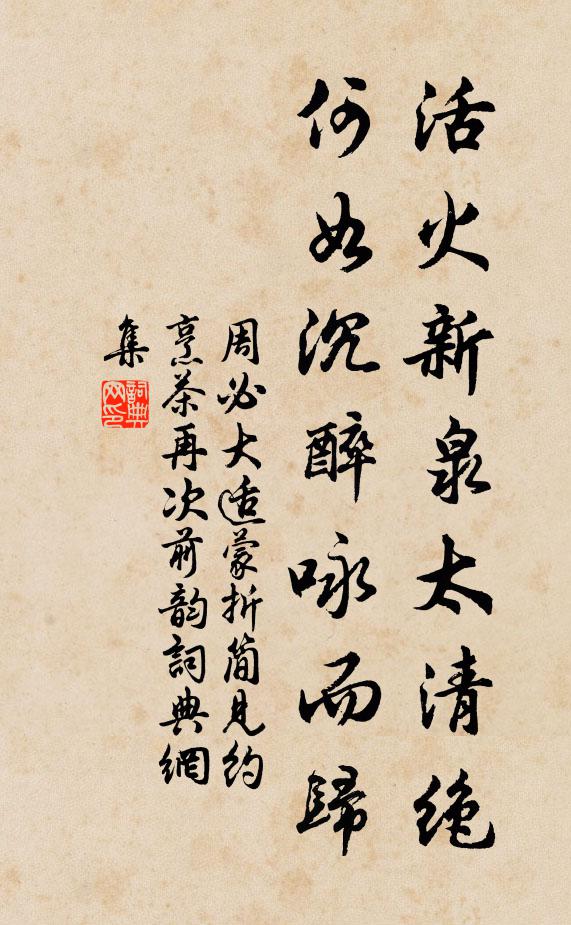 活火新泉太清绝
何如沉醉咏而歸
周必大适蒙折简見约
烹茶再次前韵詞典網
集
詞典网印